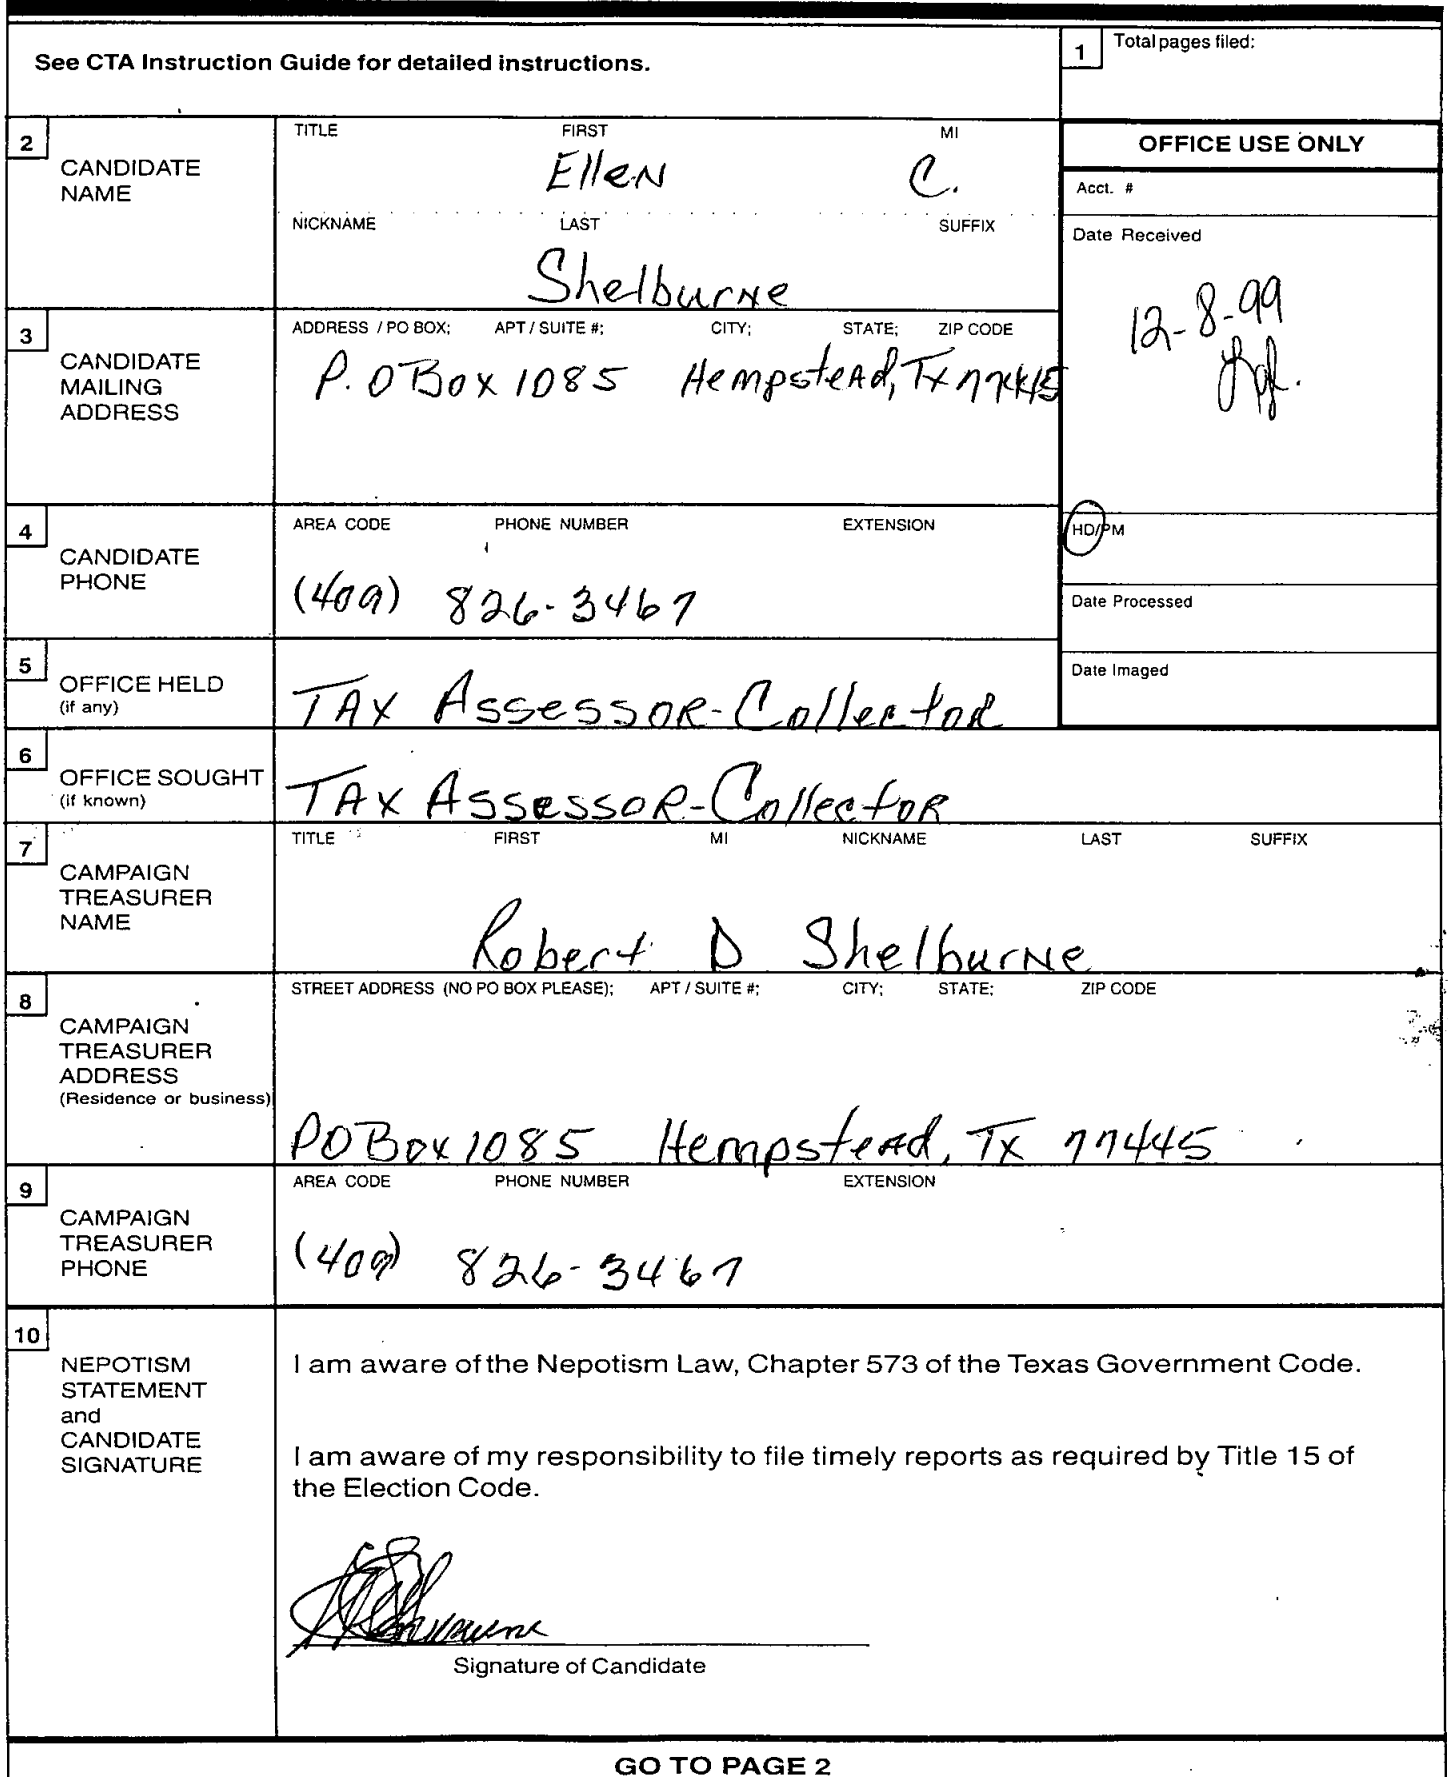 See CTA Instruction Guide for detailed instructions.
1 Total pages filed:
2 CANDIDATE NAME
TITLE FIRST MI
Ellen C.
NICKNAME LAST SUFFIX
Shelburne
OFFICE USE ONLY
Acct. #
Date Received
12-8-99
HD/PM
Date Processed
Date Imaged
3 CANDIDATE MAILING ADDRESS
ADDRESS / PO BOX; APT / SUITE #; CITY; STATE; ZIP CODE
P.O Box 1085 Hempstead, Tx 77445
4 CANDIDATE PHONE
AREA CODE PHONE NUMBER EXTENSION
(409) 826-3467
5 OFFICE HELD (if any)
TAX Assessor-Collector
6 OFFICE SOUGHT (if known)
TAX Assessor-Collector
7 CAMPAIGN TREASURER NAME
TITLE FIRST MI NICKNAME LAST SUFFIX
Robert D Shelburne
8 CAMPAIGN TREASURER ADDRESS (Residence or business)
STREET ADDRESS (NO PO BOX PLEASE); APT / SUITE #; CITY; STATE; ZIP CODE
PO Box 1085 Hempstead, Tx 77445
9 CAMPAIGN TREASURER PHONE
AREA CODE PHONE NUMBER EXTENSION
(409) 826-3467
10 NEPOTISM STATEMENT and CANDIDATE SIGNATURE
I am aware of the Nepotism Law, Chapter 573 of the Texas Government Code.
I am aware of my responsibility to file timely reports as required by Title 15 of
the Election Code.
Signature of Candidate
GO TO PAGE 2